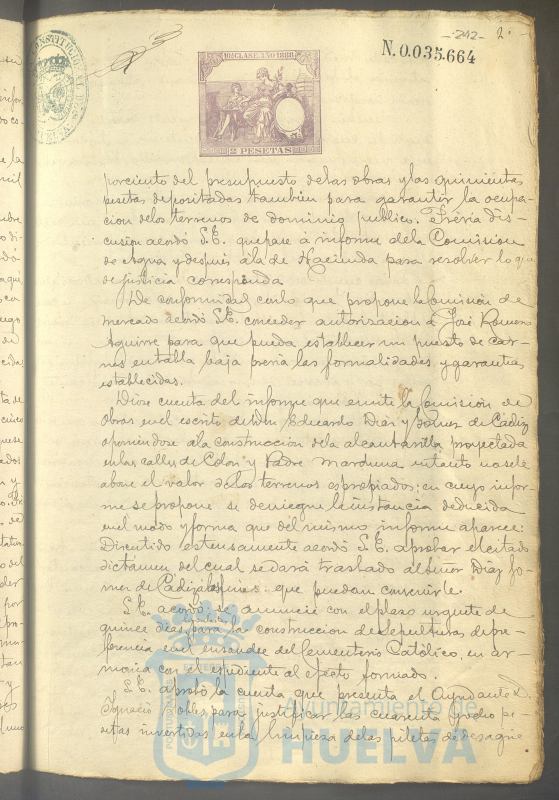 -242- 2
N.0.035.664
10ª CLASE. AÑO 1888
2 PESETAS
porciento del presupuesto delas obras y las quinientas
pesetas depositadas tambien para garantir la ocupa-
cion delos terrenos de dominio publico. Previa dis-
cusion acordó S.E. quepase á informe dela Comision
de Agua y despues á la de Hacienda para resolver lo que
de justicia corresponda.
De conformidad conlo que propone la Comision de
mercado acordó S.E. conceder autorizacion á José Romero
Aguirre para que pueda establecer un puesto de car-
nes en tabla baja previa las formalidades y garantias
establecidas.
Diose cuenta del informe que emite la Comision de
obras en el escrito de Don Eduardo Diaz y Gomez de Cadiz
oponiendose ála construccion dela alcantarilla proyectada
en las calles de Colon y Padre Marchena intanto nosele
abone el valor delos terrenos espropiados: en cuyo infor-
me se propone se deniegue la instancia deducida
en el modo y forma que del mismo informe aparece:
Discutido estensamente acordó S.E. aprobar el citado
dictámen del cual se dará traslado al Señor Diaz Go-
mez de Cadiz alos fines que puedan convenirle.
S.E. acordó se anuncie con el plazo urgente de
quince dias para la construccion de sepulturas depre-
ferencia en el ensanche del Cementerio Católico, en ar-
monia con el espediente al efecto formado.
S.E. aprobó la cuenta que presenta el Ayudante D.
Ignacio Robles para justificar las cuarenta y ocho pe-
setas invertidas en la limpieza delas piletas de desagüe
Ayuntamiento de
HUELVA